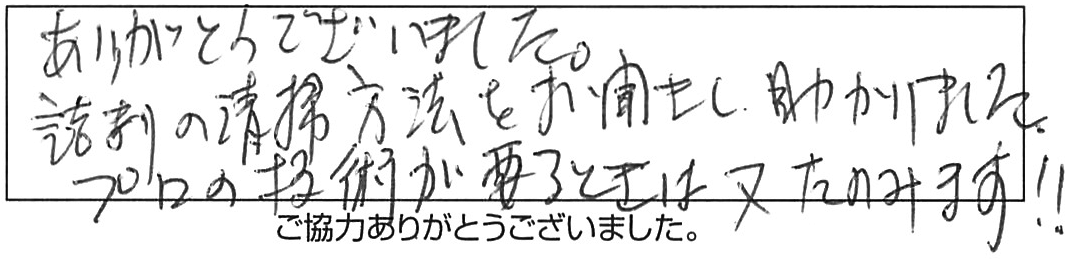 ありがとうございました。
の清掃方法をお聞きし、助かりました。
プロの技術が要るときは又たのみます!!
ご協力ありがとうございました。